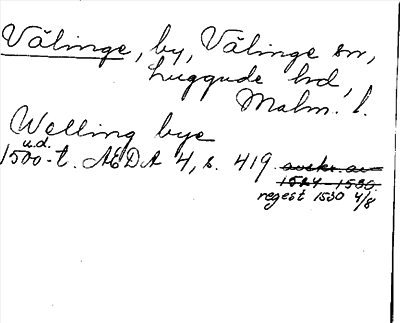 Välinge, by, Välinge sn,
Luggude hd,
Malm. l.
Welling bye
u.d.
1500-t. ÆDA 4, s. 419. avskr. av
1524-1530.
regest 1530 4/8